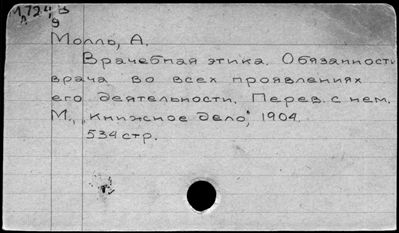 Молль, А.
Врачебная этика. Обязанности
врача во всех проявлениях
его деятельности. Перев. с нем.
М., „Книжное дело", 1904.
534 стр.